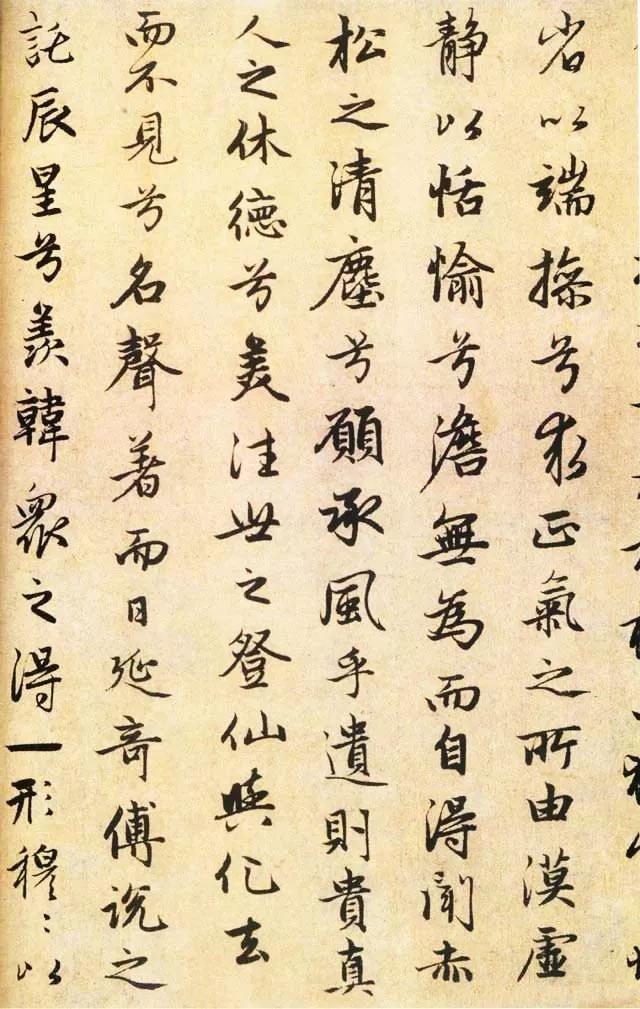 省以端操兮求正氣之所由漠虛
靜以恬愉兮澹無為而自得聞赤
松之清塵兮願承風乎遺則貴真
人之休德兮羨往世之登仙與化去
而不見兮名聲著而日延奇傅說之
託辰星兮羨韓眾之得一形穆〻以